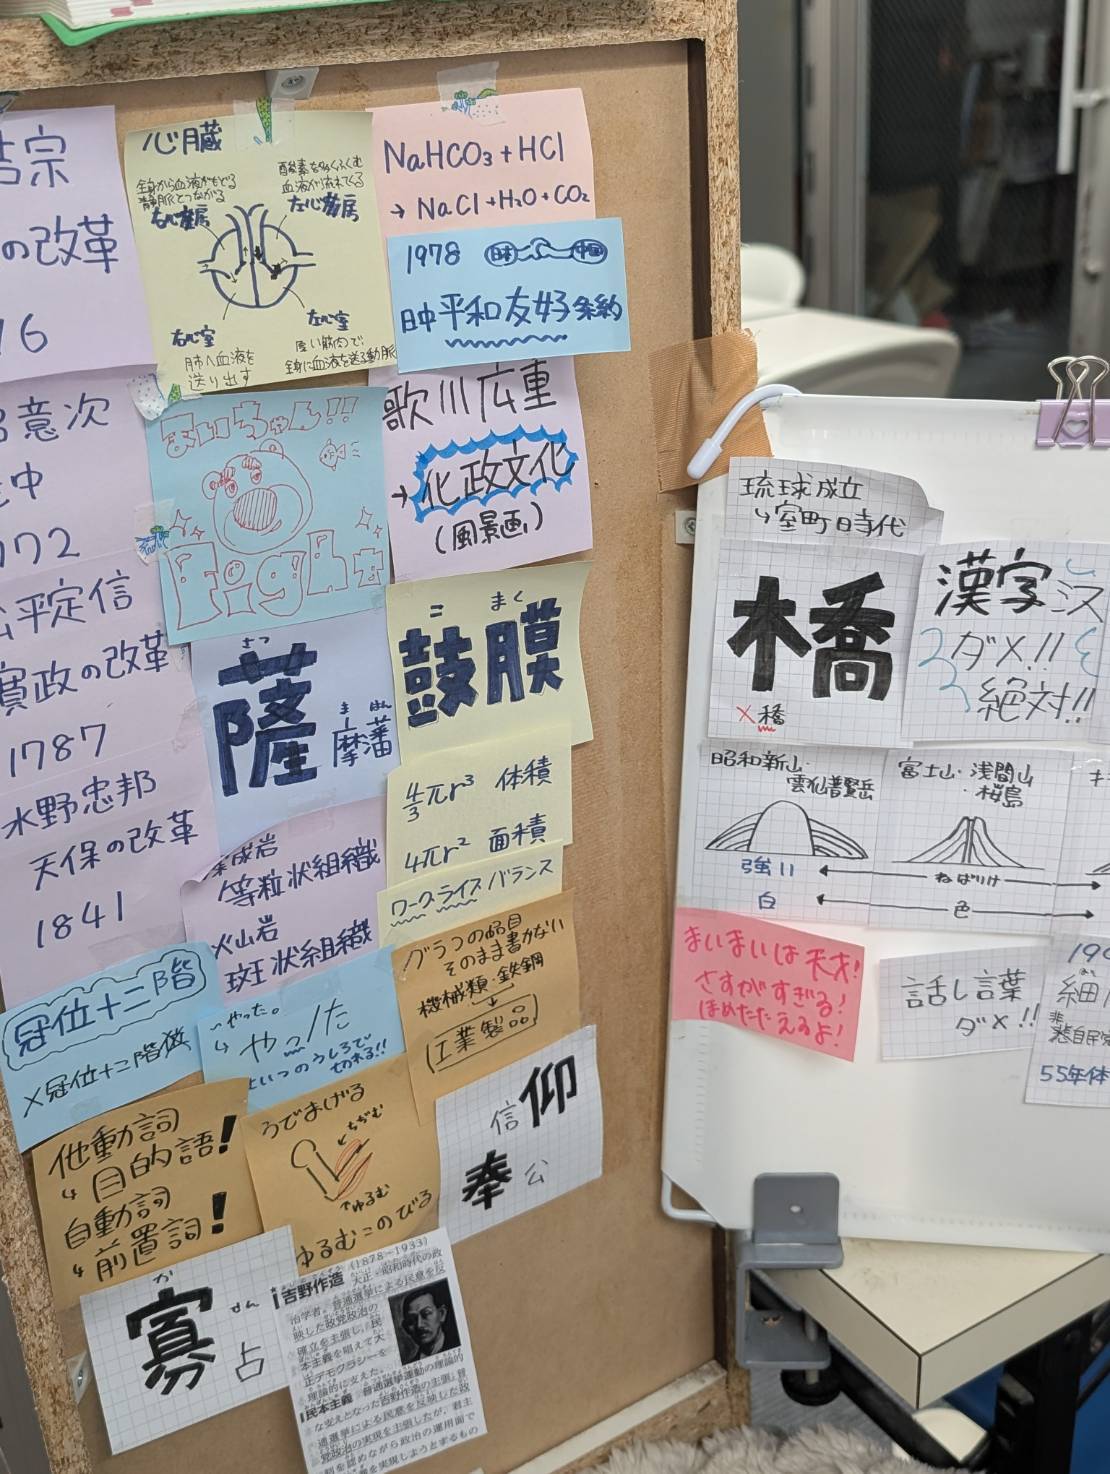 吉宗
の改革
16
意次
中
772
平定信
寛政の改革
1787
水野忠邦
天保の改革
1841
冠位十二階
×冠位十二階位
心臓
全身から血液がもどる
静脈とつながる
右心房
酸素を多くふくむ
血液が流れてくる
左心房
右心室
肺へ血液を
送り出す
左心室
厚い筋肉で
全身に血液を送る動脈
NaHCO₃+HCl
→NaCl+H₂O+CO₂
1978 日本 中国
日中平和友好条約
まいちゃん!!
Fight
歌川広重
→化政文化
(風景画)
さつ
薩
ま はん
摩藩
こ まく
鼓膜
4/3πr³ 体積
4πr² 面積
ワークライフバランス
深成岩
等粒状組織
火山岩
斑状組織
やった。
↳やっ/た
といつのうしろで
切れる!!
グラフの品目
そのまま書かない
機械類・鉄鋼
↓
工業製品
他動詞
↳目的語!
自動詞
↳前置詞!
うでまげる
とちぢむ
ゆるむ
ゆるむこのびる
信仰
奉公
か せん
寡占
吉野作造
(1878〜1933)
大正・昭和時代の政
治学者。普通選挙による民意を反
映した政党政治の
確立を主張し、民
本主義を唱えて大
正デモクラシーを
理論的に支えた。
民本主義
普通選挙運動の理論的
な支えとなった吉野作造の主張。普
通選挙による民意を反映した政
党政治の実現を主張したが、君主
制を認めながら政治の運用面で
を実現しようとするもの
琉球成立
↳室町時代
橋
×橋
漢字
ダメ!!
絶対!!
昭和新山・
雲仙普賢岳
富士山・浅間山
・桜島
キ
強い
ねばりけ
白
色
まいまいは天才!
さすがすぎる!
ほめたたえるよ!
話し言葉
ダメ!!
19
細川
非自民
55年体